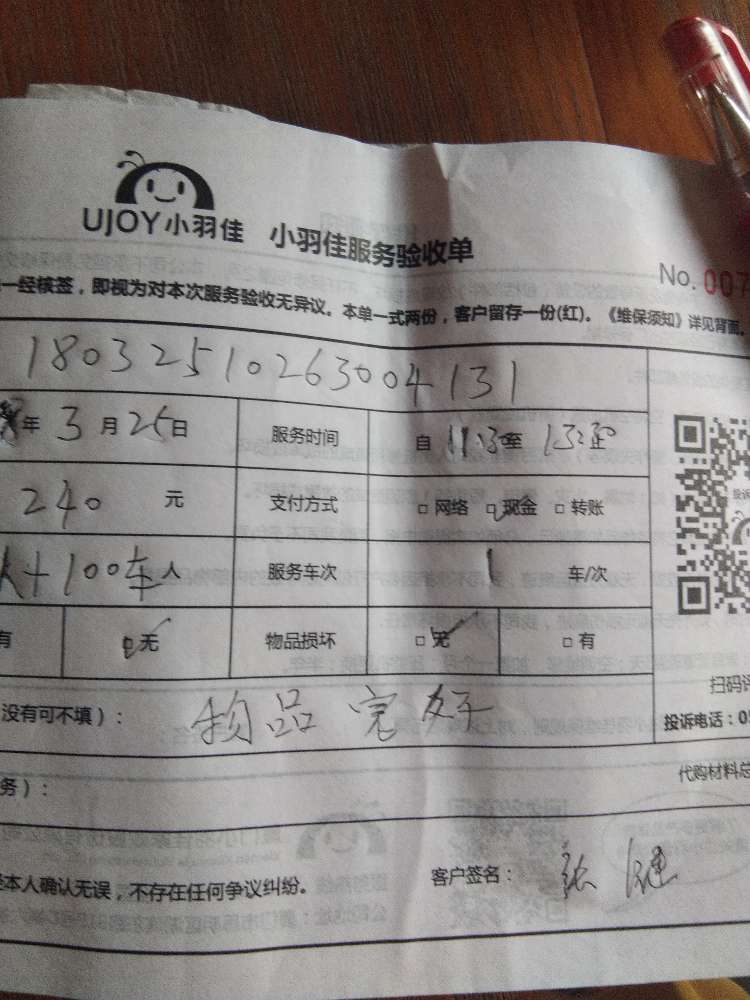 UJOY小羽佳 小羽佳服务验收单
No. 007
一经核签，即视为对本次服务验收无异议。本单一式两份，客户留存一份(红)。《维保须知》详见背面。
180325102630004131
年 3 月 25 日 服务时间 自 11:30 至
240 元 支付方式 □ 网络 □ 现金 □ 转账
+100车 人 服务车次 1 车/次
有 □ 无 物品损坏 □ 无 □ 有
没有可不填）： 物品完好
扫码评
投诉电话：05
代购材料总
务）：
本人确认无误，不存在任何争议纠纷。 客户签名： 张健